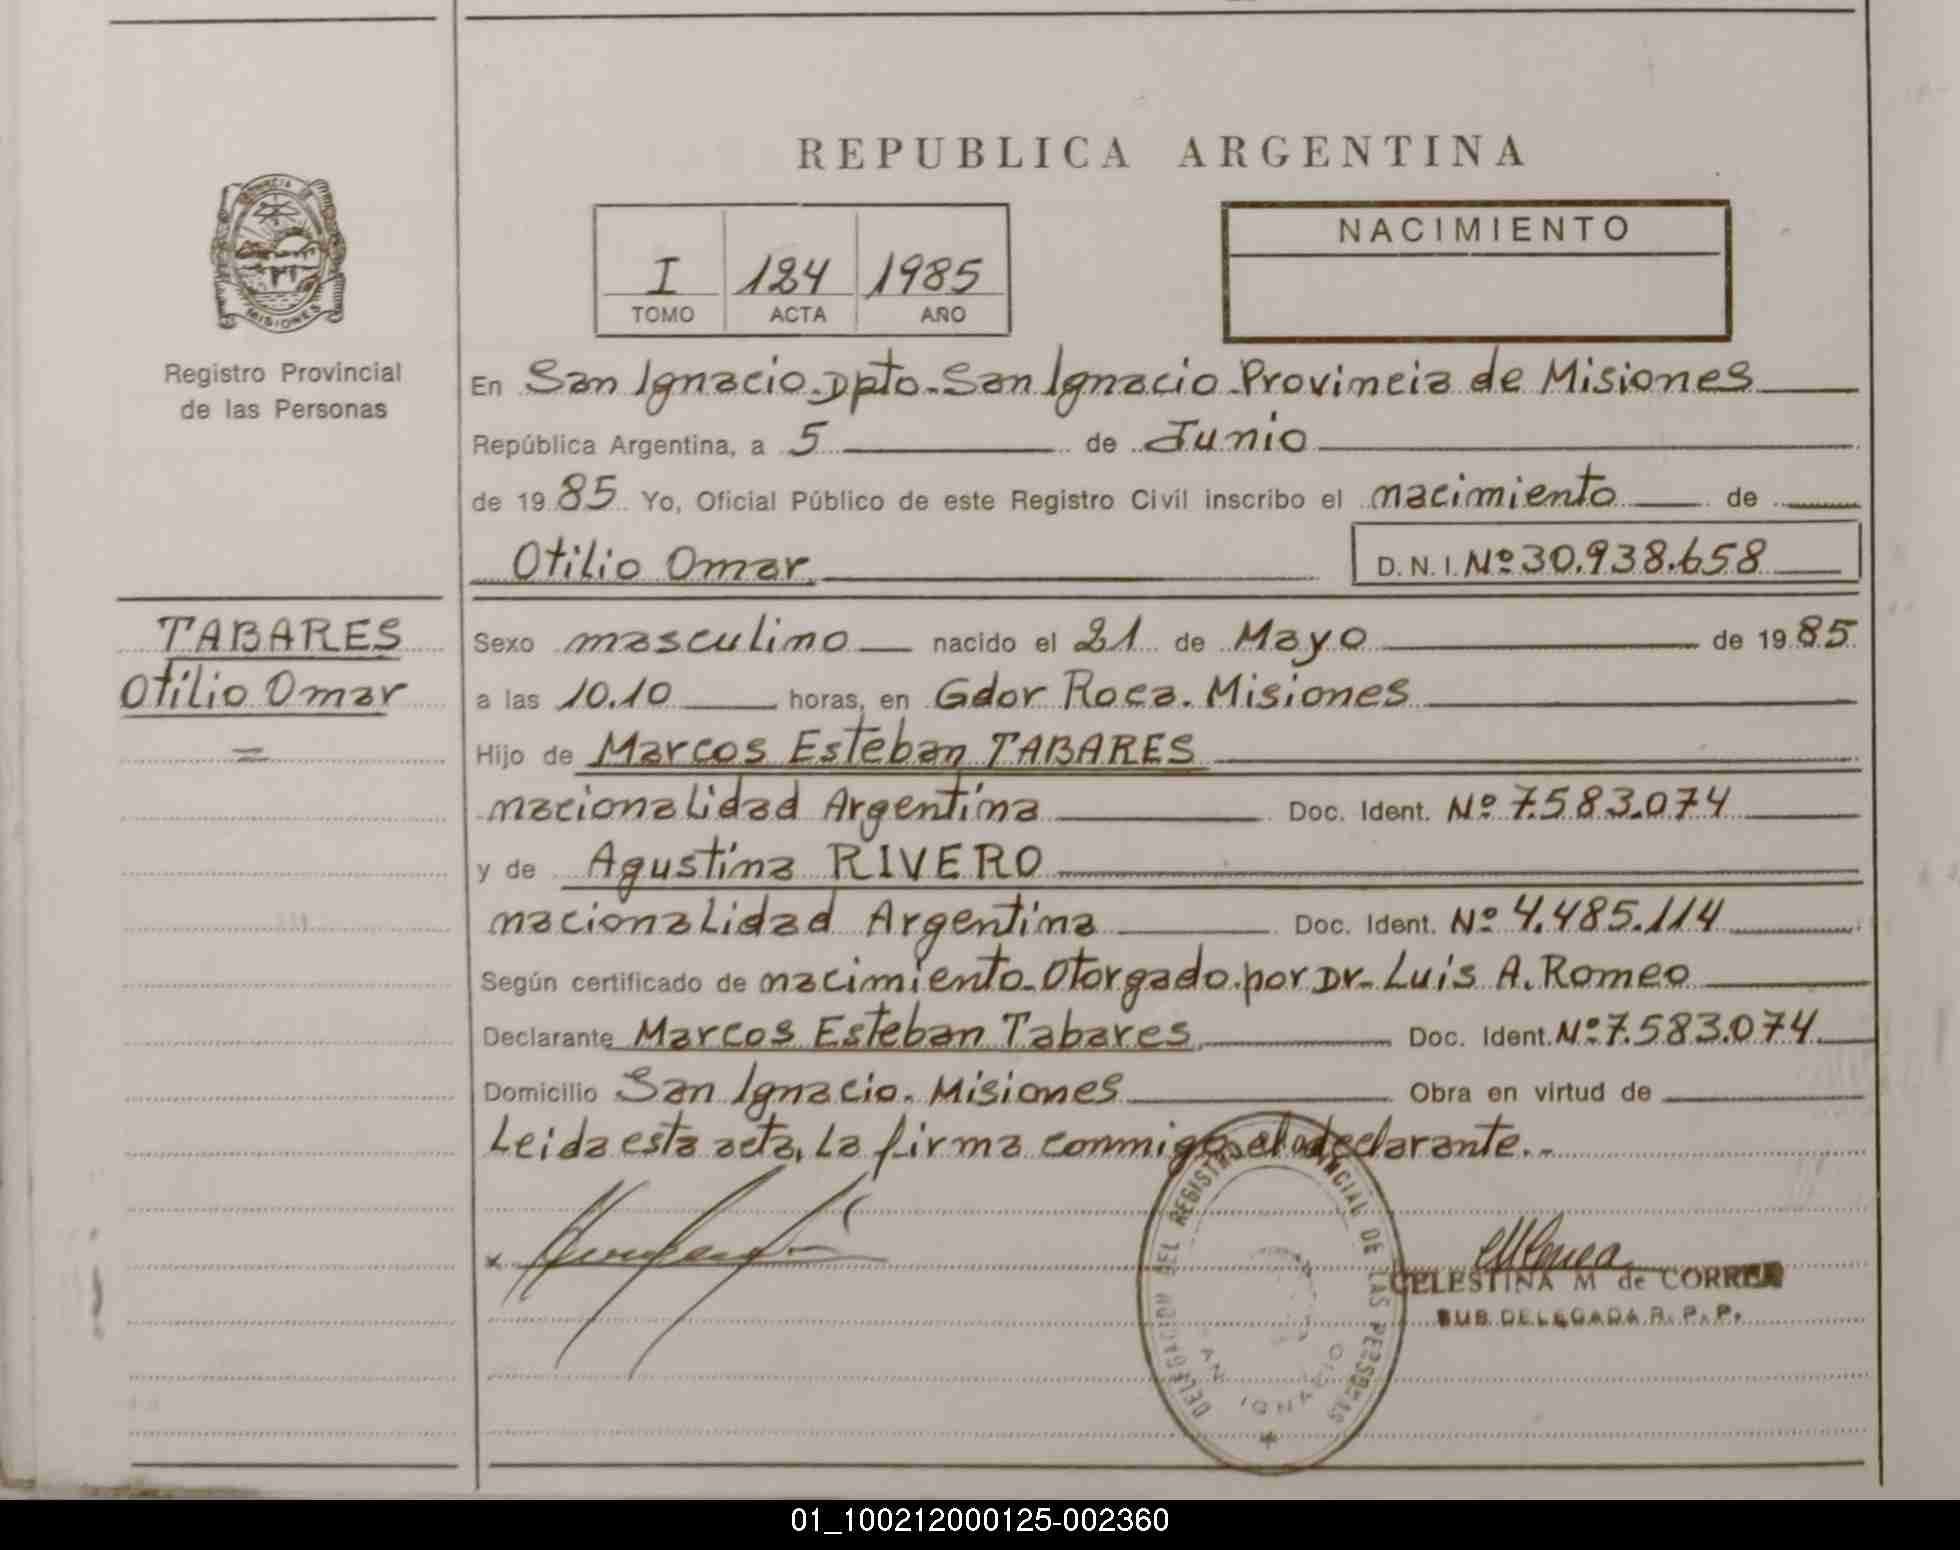 REPUBLICA ARGENTINA
PROVINCIA DE
MISIONES
Registro Provincial
de las Personas
I 184 1985
TOMO ACTA AÑO
NACIMIENTO
En San Ignacio.Dpto.San Ignacio.Provincia de Misiones
República Argentina, a 5 de Junio
de 1985 Yo, Oficial Público de este Registro Civil inscribo el nacimiento de
Otilio Omar D.N.I. Nº 30.938.658
TABARES
Otilio Omar
Sexo masculino nacido el 21 de Mayo de 1985
a las 10.10 horas, en Gdor Roca. Misiones
Hijo de Marcos Esteban TABARES
nacionalidad Argentina Doc. Ident. Nº 7.583.074
y de Agustina RIVERO
nacionalidad Argentina Doc. Ident. Nº 4.485.114
Según certificado de nacimiento.Otorgado.por Dr. Luis A. Romeo
Declarante Marcos Esteban Tabares Doc. Ident. Nº 7.583.074
Domicilio San Ignacio. Misiones Obra en virtud de
Leida esta acta, La firma conmigo el declarante.-
x
DELEGACION DEL REGISTRO PROVINCIAL DE LAS PERSONAS
SAN IGNACIO
CELESTINA M de CORREA
SUB DELEGADA R. P. P.
01_100212000125-002360